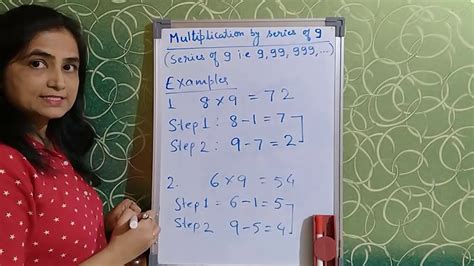 Multiplication by series of 9
(series of 9 i.e 9,99,999,...)
Examples
1 8×9 = 72
Step 1 : 8-1 = 7
Step 2 : 9-7 = 2
2. 6×9 = 54
Step 1 : 6-1 = 5
Step 2 9-5 = 4